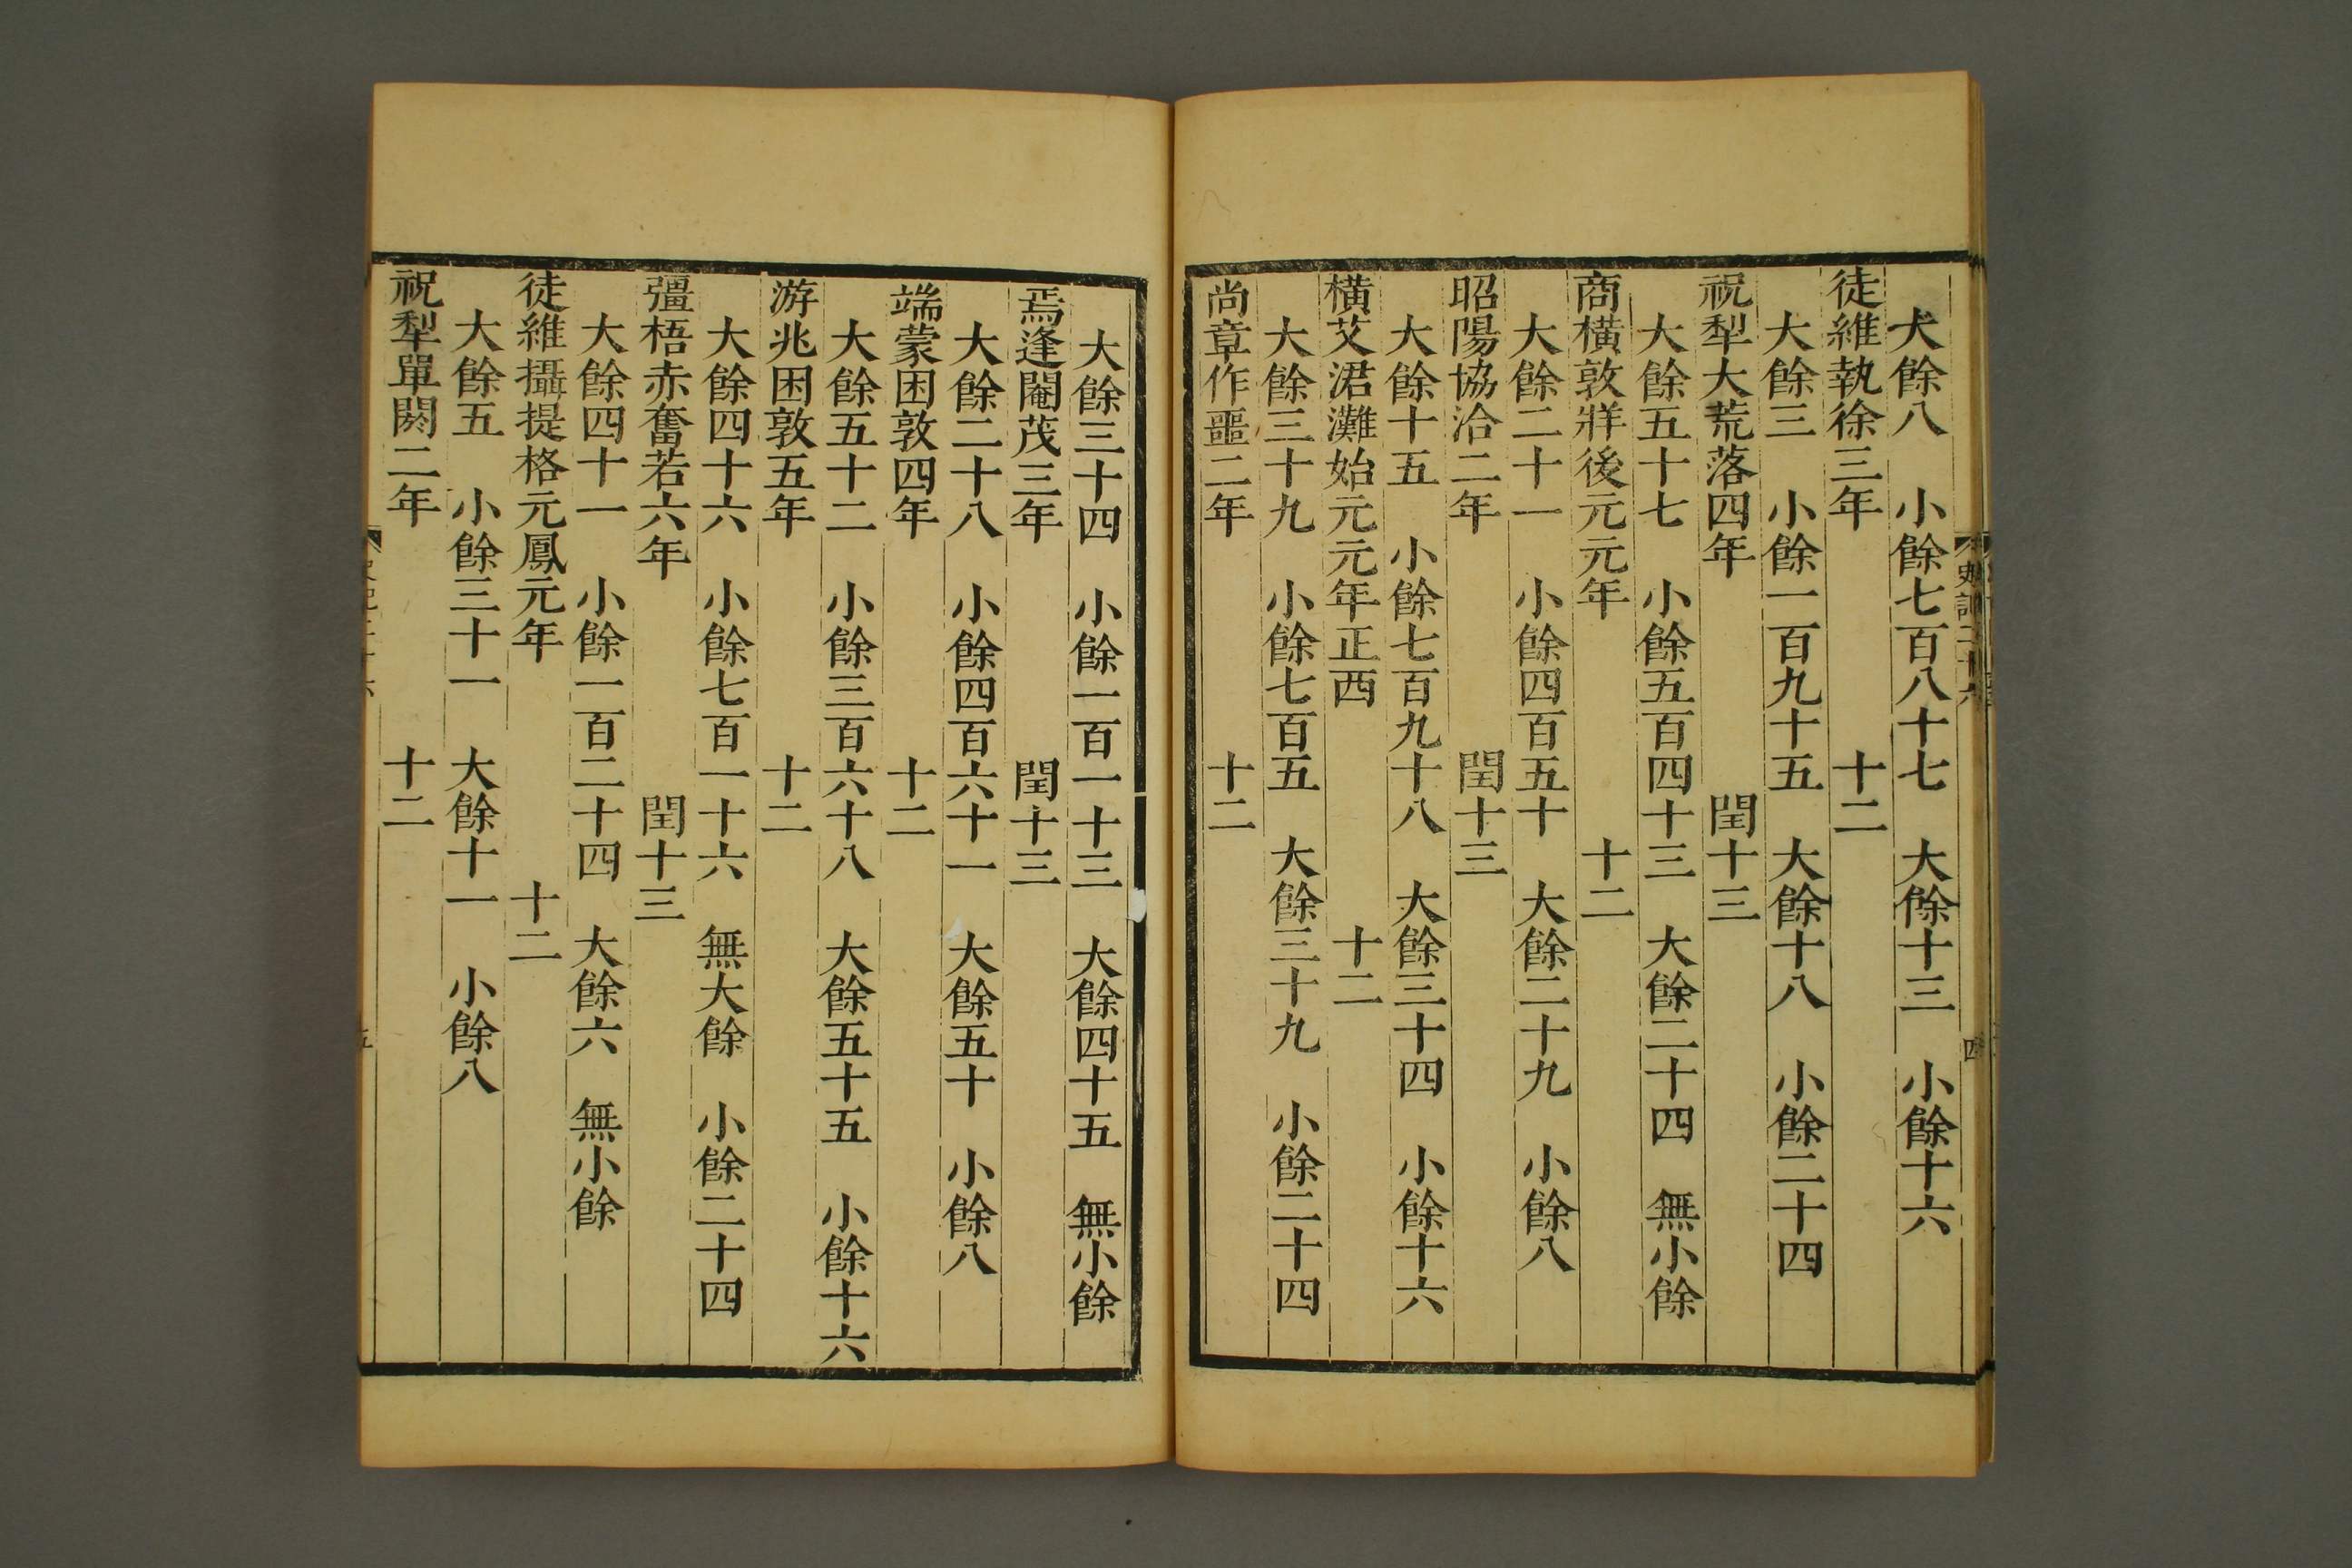 大餘八　小餘七百八十七　大餘十三　小餘十六
徒維執徐三年　十二
大餘三　小餘一百九十五　大餘十八　小餘二十四
祝犁大荒落四年　閏十三
大餘五十七　小餘五百四十三　大餘二十四　無小餘
商橫敦牂後元元年　十二
大餘二十一　小餘四百五十　大餘二十九　小餘八
昭陽協洽二年　閏十三
大餘十五　小餘七百九十八　大餘三十四　小餘十六
橫艾涒灘始元元年正西　十二
大餘三十九　小餘七百五　大餘三十九　小餘二十四
尚章作噩二年　十二
大餘三十四　小餘一百一十三　大餘四十五　無小餘
焉逢閹茂三年　閏十三
大餘二十八　小餘四百六十一　大餘五十　小餘八
端蒙困敦四年　十二
大餘五十二　小餘三百六十八　大餘五十五　小餘十六
游兆困敦五年　十二
大餘四十六　小餘七百一十六　無大餘　小餘二十四
彊梧赤奮若六年　閏十三
大餘四十一　小餘一百二十四　大餘六　無小餘
徒維攝提格元鳳元年　十二
大餘五　小餘三十一　大餘十一　小餘八
祝犁單閼二年　十二
史記二十六
四